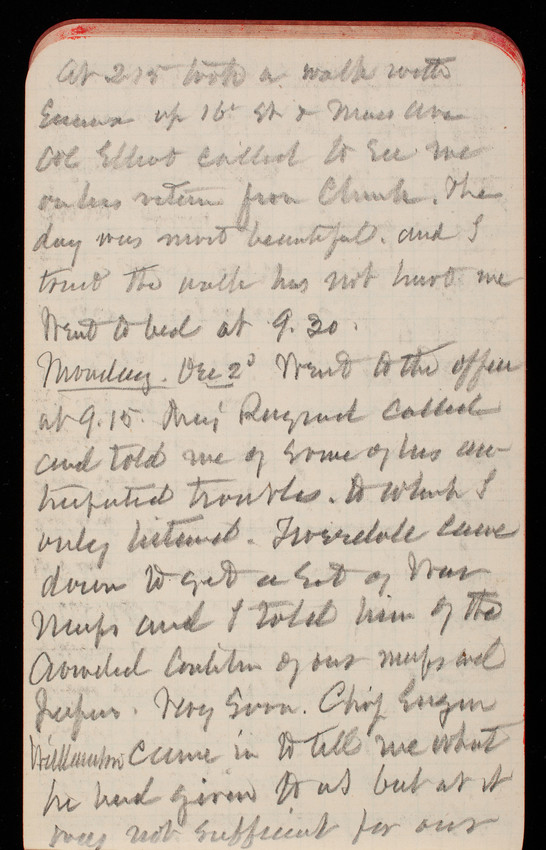 At 2.15 took a walk with
Emma up 16" St & Mass Ave
Col Elliot called to see me
on his return from Church. The
day was most beautiful. and I
trust the walk has not hurt me
Went to bed at 9.30.
Monday. Dec 2d Went to the office
at 9.15. Maj Raymond called
and told me of some of his an-
ticipated troubles. to which I
only listened. Truesdale came
down to get a set of War
Maps and I told him of the
crowded condition of our maps and
papers. Very soon. Chf Engin
Williamson came in to tell me what
he had given to us but as it
was not sufficient for our